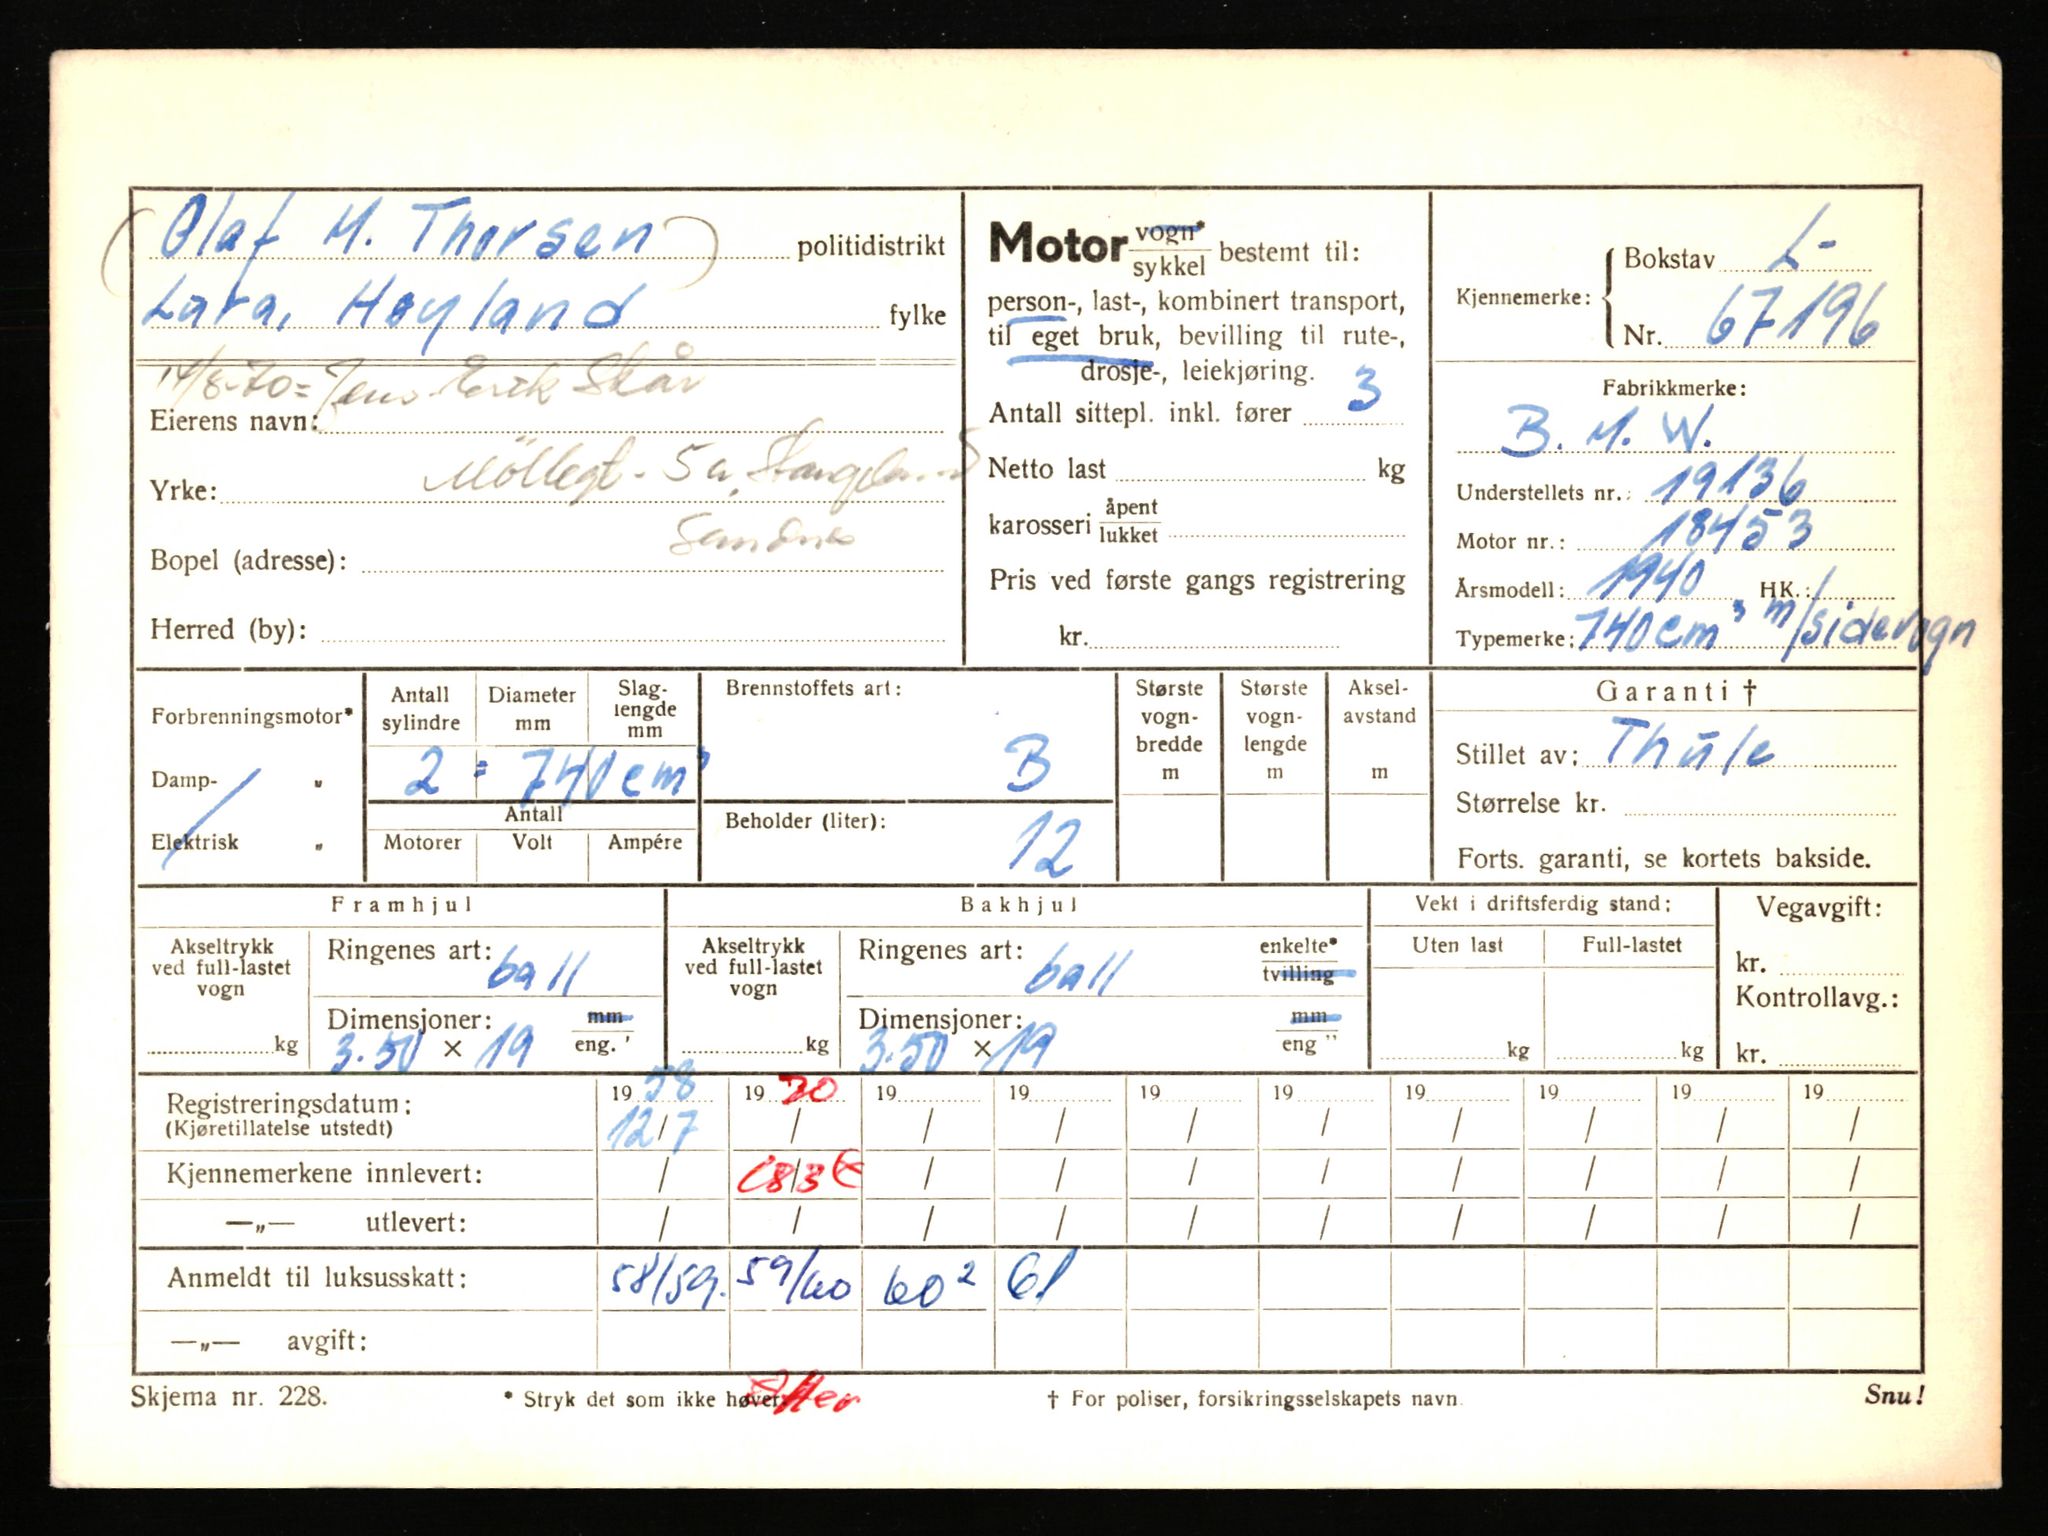 Olaf M. Thorsen politidistrikt
Lura, Høyland fylke
14/8-70 = Jens Erik Skår
Eierens navn:
Möllegt. 5a, Stangeland
Yrke:
Sandnes
Bopel (adresse):
Herred (by):
Motor vogn*/sykkel bestemt til:
person-, last-, kombinert transport,
til eget bruk, bevilling til rute-,
drosje-, leiekjøring.
Antall sittepl. inkl. fører 3
Netto last kg
karosseri åpent/lukket
Pris ved første gangs registrering
kr.
Kjennemerke: Bokstav L-
Nr. 67196
Fabrikkmerke:
B. M. W.
Understellets nr.: 19136
Motor nr.: 18453
Årsmodell: 1940 HK.:
Typemerke: 740 cm³ m/sidevogn
Forbrenningsmotor*
Damp- „
Elektrisk „
Antall sylindre Diameter mm Slaglengde mm
2 = 740 cm³
Antall
Motorer Volt Ampére
Brennstoffets art:
B
Beholder (liter):
12
Største vognbredde m
Største vognlengde m
Akselavstand m
Garanti †
Stillet av: Thule
Størrelse kr.
Forts. garanti, se kortets bakside.
Framhjul
Akseltrykk ved full-lastet vogn
kg
Ringenes art: ball
Dimensjoner: mm
3.50 × 19 eng. '
Bakhjul
Akseltrykk ved full-lastet vogn
kg
Ringenes art: ball enkelte*
tvilling
Dimensjoner: mm
3.50 × 19 eng "
Vekt i driftsferdig stand:
Uten last Full-lastet
kg kg
Vegavgift:
kr.
Kontrollavg.:
kr.
19 58 19 70 19 19 19 19 19 19 19 19
Registreringsdatum: 12/7 / / / / / / / / /
(Kjøretillatelse utstedt)
Kjennemerkene innlevert: / 18/3 / / / / / / / /
—„— utlevert: / / / / / / / / / /
Anmeldt til luksusskatt: 58/59. 59/60 60² 61
—„— avgift:
Skjema nr. 228. * Stryk det som ikke høver. † For poliser, forsikringsselskapets navn. Snu!